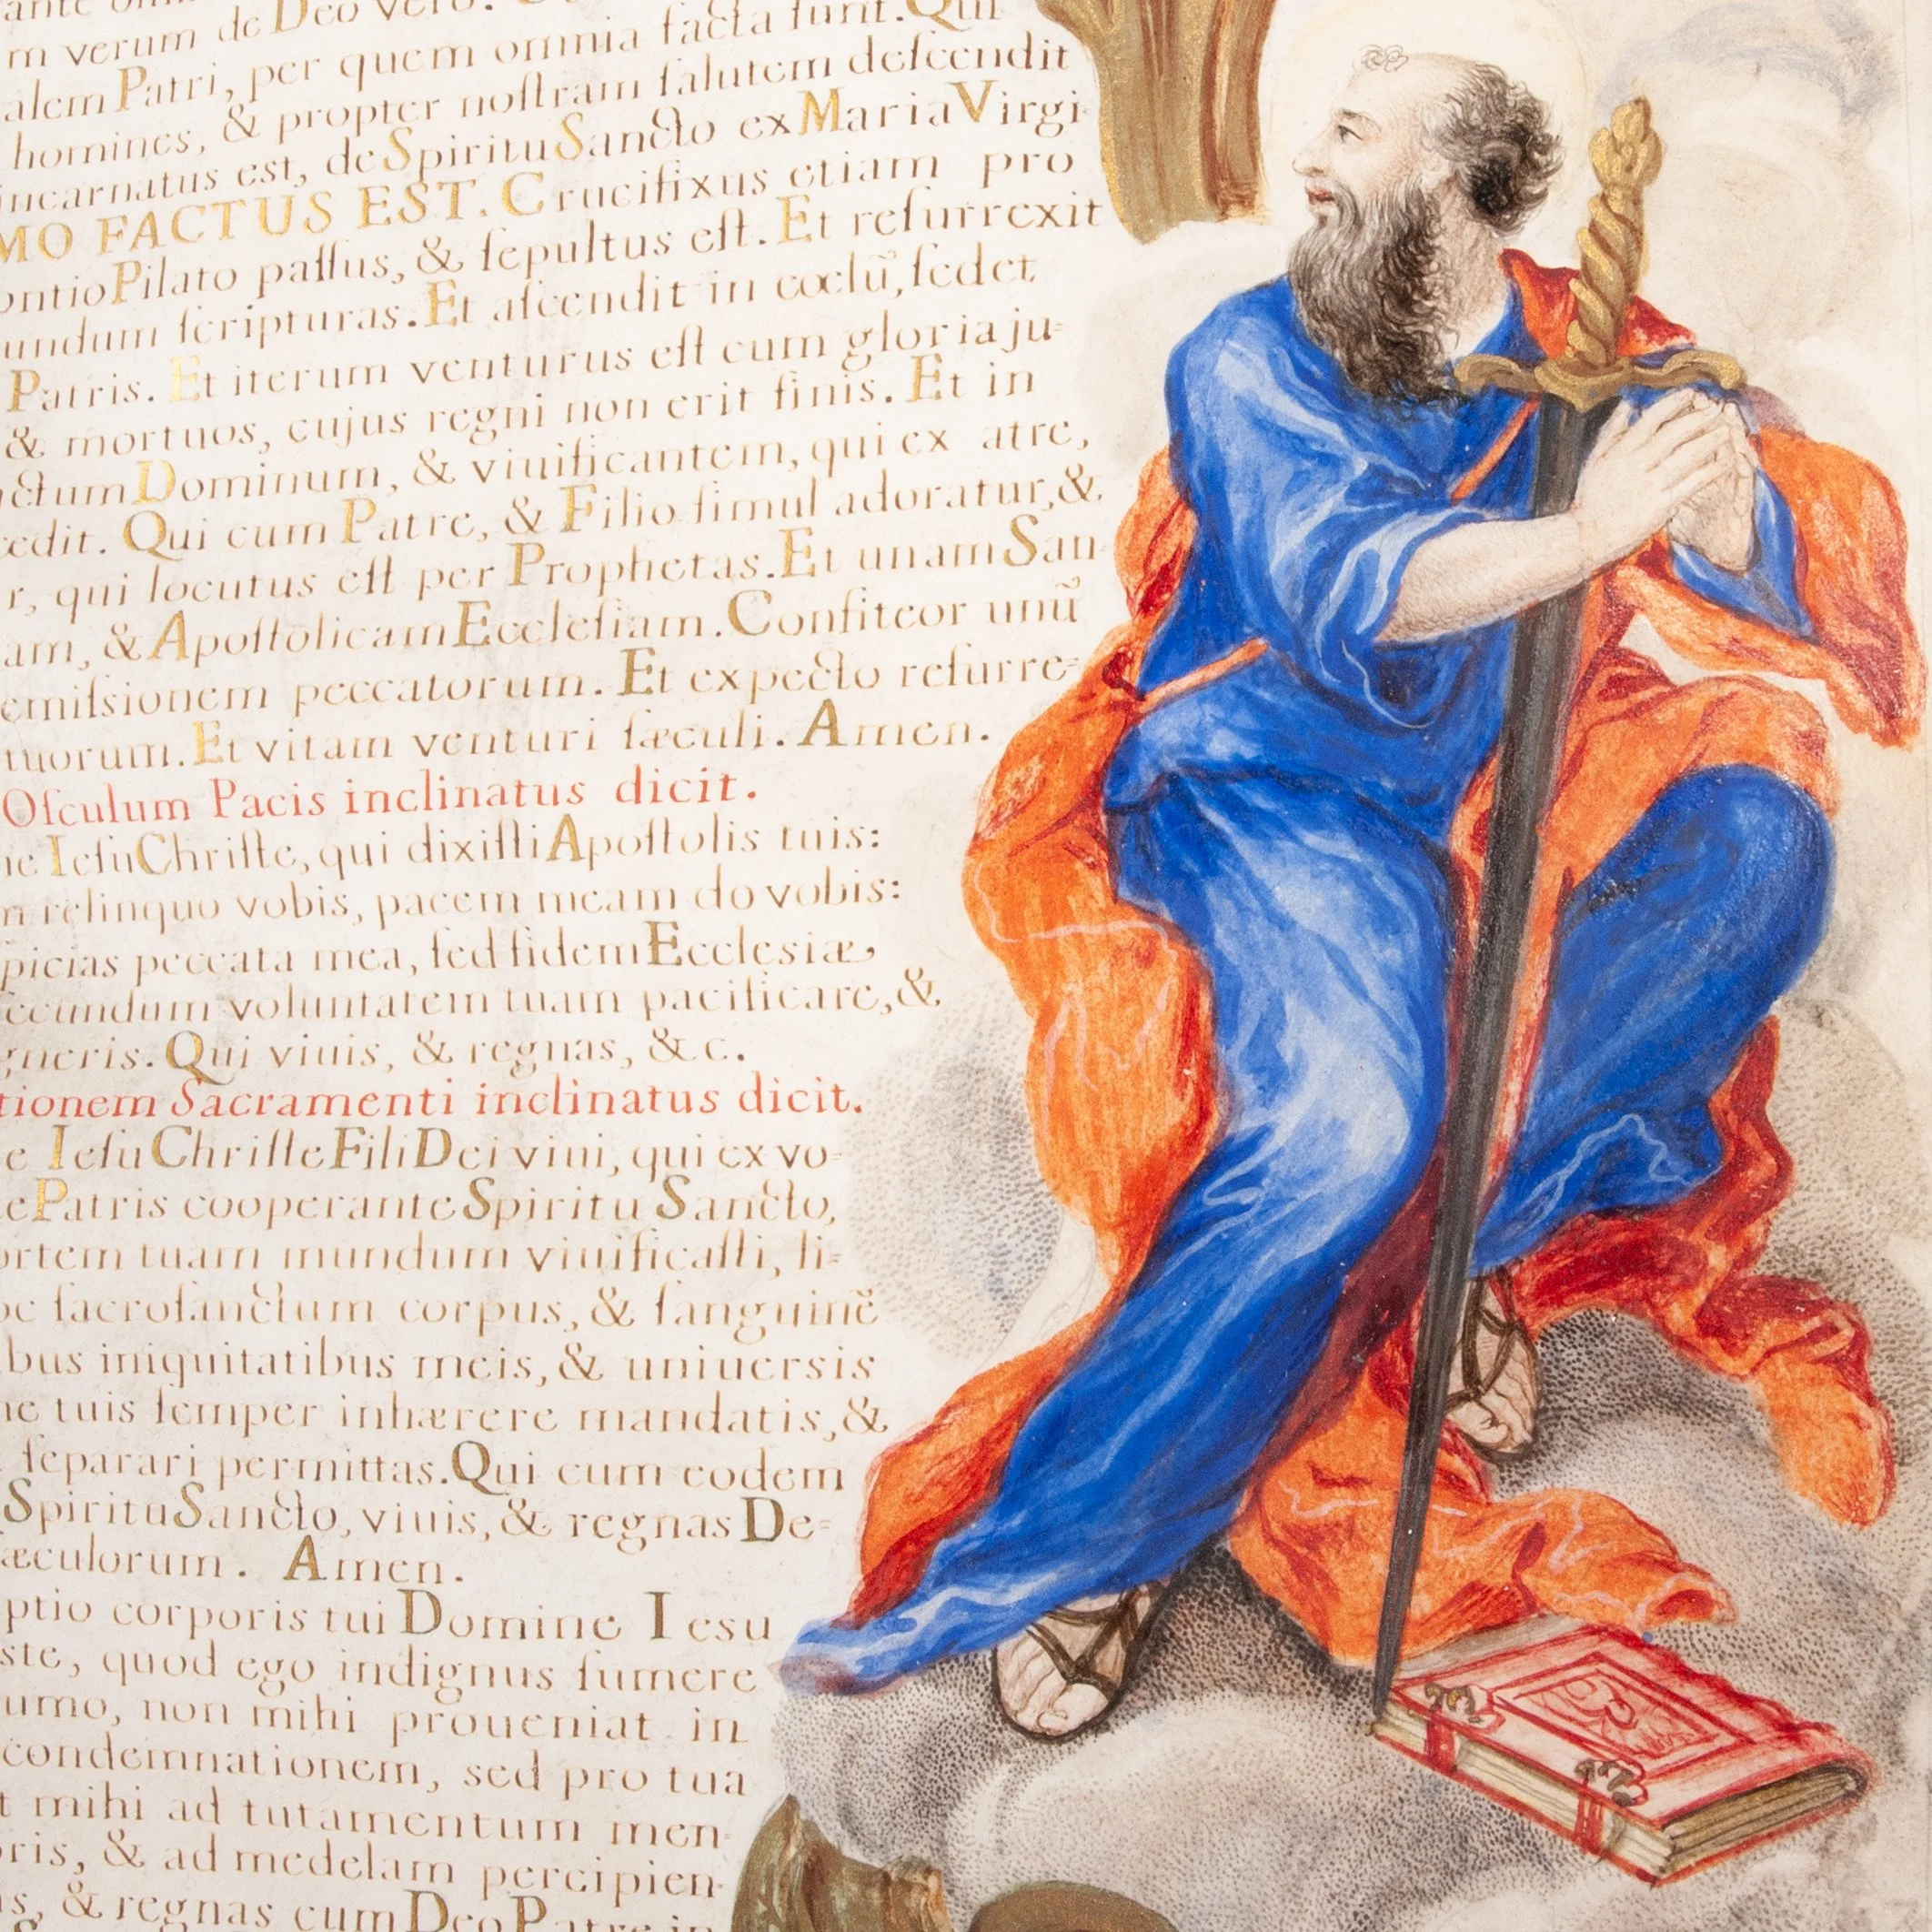 ante
m verum de Deo vero.
alem Patri, per quem omnia facta ſunt. Qui
homines, & propter noſtram ſalutem deſcendit
incarnatus est, de Spiritu Sancto ex Maria Virgi-
MO FACTUS EST. Crucifixus etiam pro
ontio Pilato paſſus, & ſepultus eſt. Et reſurrexit
undum ſcripturas. Et aſcendit in cœlũ, ſedet
Patris. Et iterum venturus eſt cum gloria ju=
& mortuos, cujus regni non erit finis. Et in
ctum Dominum, & viuificantem, qui ex atre,
cedit. Qui cum Patre, & Filio ſimul adoratur, &
r, qui locutus eſt per Prophetas. Et unam San-
am, & Apoſtolicam Eccleſiam. Confiteor unũ
emiſsionem peccatorum. Et expecto reſurre=
tuorum. Et vitam venturi ſæculi. Amen.
Oſculum Pacis inclinatus dicit.
ne Ieſu Chriſte, qui dixiſti Apoſtolis tuis:
m relinquo vobis, pacem meam do vobis:
picias peccata mea, ſed fidem Ecclesiæ,
ecundum voluntatem tuam pacificare, &
gneris. Qui viuis, & regnas, &c.
tionem Sacramenti inclinatus dicit.
e Ieſu Chriſte Fili Dei viui, qui ex vo=
te Patris cooperante Spiritu Sancto,
ortem tuam mundum viuificaſti, li=
oc ſacroſanctum corpus, & ſanguinẽ
bus iniquitatibus meis, & uniuersis
ne tuis ſemper inhærere mandatis, &
ſeparari permittas. Qui cum eodem
Spiritu Sancto, viuis, & regnas De=
æculorum. Amen.
ptio corporis tui Domine Iesu
ste, quod ego indignus ſumere
umo, non mihi proueniat in
condemnationem, sed pro tua
t mihi ad tutamentum men-
oris, & ad medelam percipien-
as, & regnas cum Deo Patre in